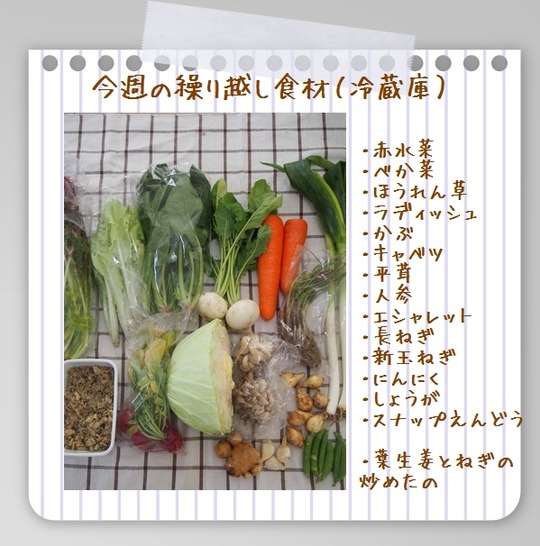 今週の繰り越し食材(冷蔵庫)
・赤水菜
・べか菜
・ほうれん草
・ラディッシュ
・かぶ
・キャベツ
・平茸
・人参
・エシャレット
・長ねぎ
・新玉ねぎ
・にんにく
・しょうが
・スナップえんどう
・葉生姜とねぎの
炒めたの